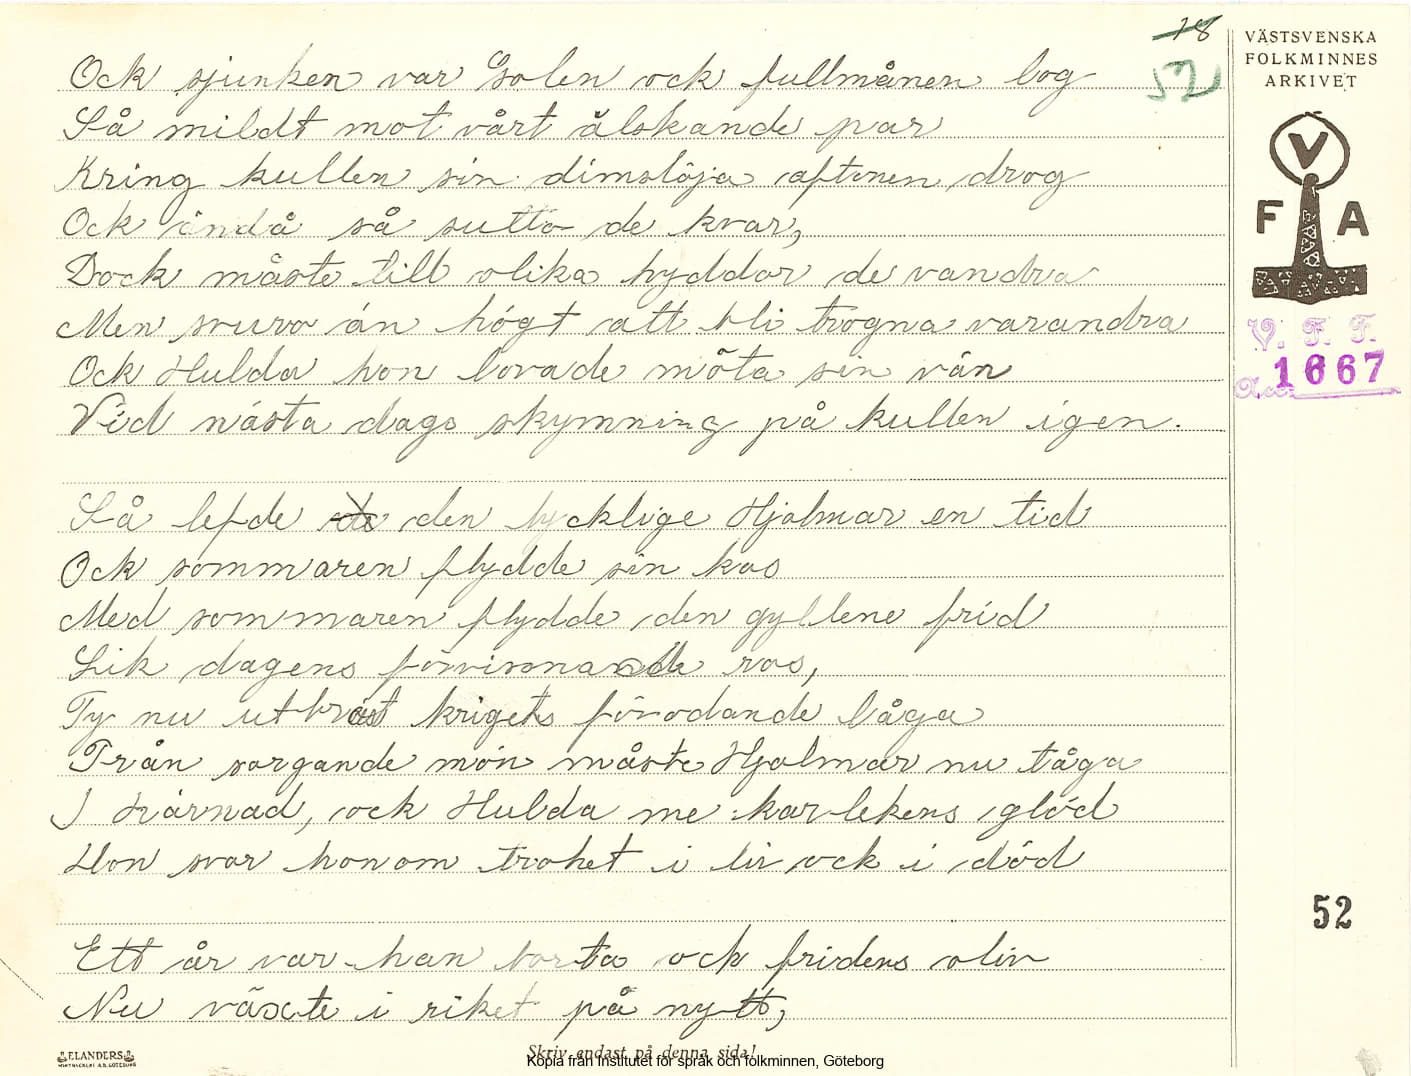 18
52
VÄSTSVENSKA
FOLKMINNES
ARKIVET
V
F A
V. F. F.
Acc. 1667
Ock sjunken var Solen ock fullmånen log
Så mildt mot vårt älskande par
Kring kullen sin dimslöja aftonen drog
Ock ändå så sutto de kvar,
Dock måste till olika hyddor de vandra
Men svuro än högt att bli trogna varandra
Ock Hulda hon lovade möta sin vän
Vid nästa dags skymning på kullen igen.
Så lefde den lycklige Hjalmar en tid
Ock sommaren flydde sin kos
Med sommaren flydde den gyllene frid
Lik dagens förvissnande ros,
Ty nu utbrast krigets förödande låga
Från sorgande mön måste Hjalmar nu tåga
I härnad, ock Hulda me kärlekens glöd
Hon svor honom trohet i liv ock i död
52
Ett år var han borta ock fridens oliv
Nu växte i riket på nytt,
ELANDERS
Skriv endast på denna sida!
Kopia från Institutet för språk och folkminnen, Göteborg